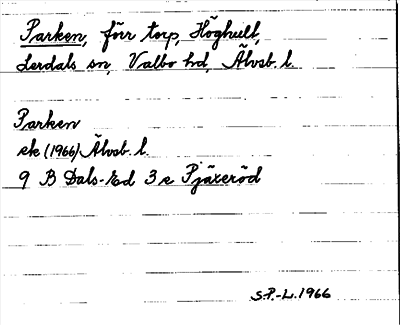 Parken, förr torp, Höghult,
Lerdals sn, Valbo hd, Älvsb. l.
Parken
ek (1966) Älvsb. l.
9 B Dals-Ed 3 e Pjäxeröd
S.P.-L. 1966